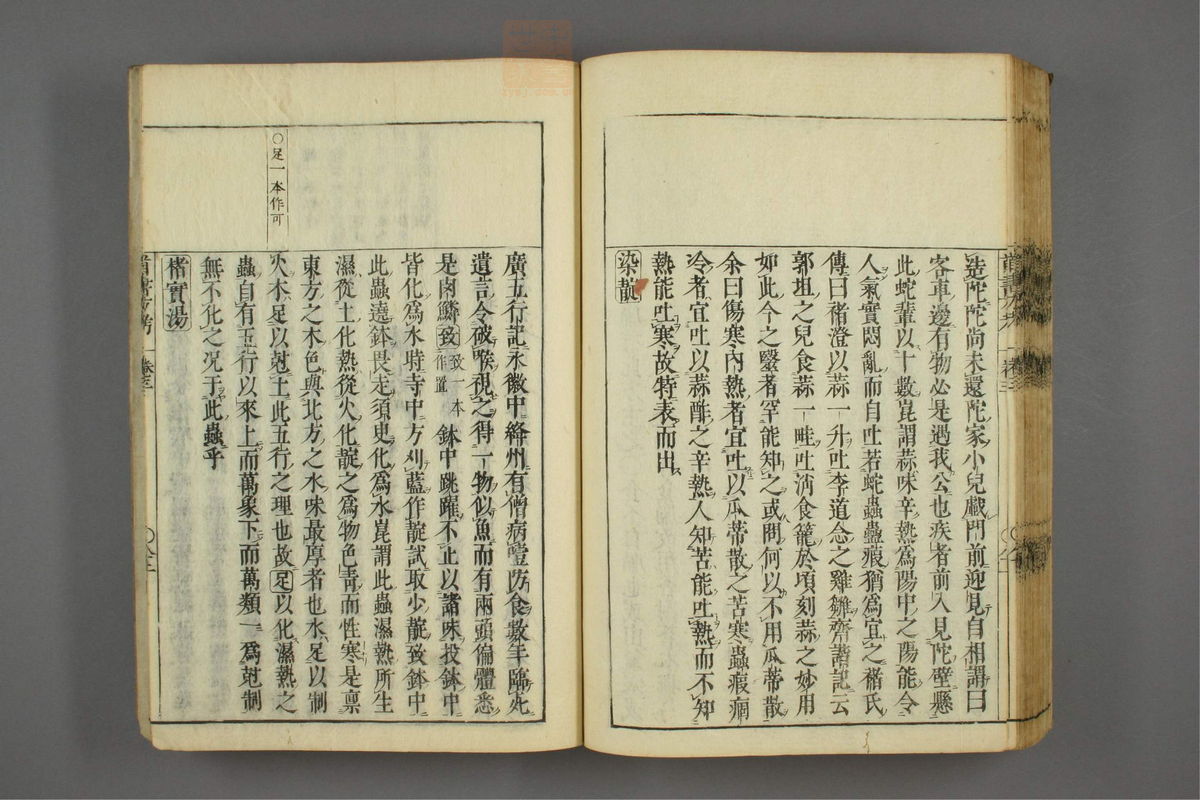 造陀陀尚未還陀家小兒戲門前迎見自相謂曰
客車邊有物必是遇我公也疾者前入見陀壁懸
此蛇輩以十數崑謂蒜味辛熱爲陽中之陽能令
人氣實悶亂而自吐若蛇蟲蠱瘕猶爲宜之褚氏
傳曰褚澄以蒜一升吐李道念之雞雛齊諧記云
郭坦之兒食蒜一畦吐消食籠於頃刻蒜之妙用
如此今之醫者罕能知之或問何以不用瓜蒂散
余曰傷寒內熱者宜吐以瓜蒂散之苦寒蟲瘕痼
冷者宜吐以蒜酢之辛熱人知苦能吐熱而不知
熱能吐寒故特表而出
染靛
廣五行記永徽中絳州有僧病噎妨食數年臨死
遺言令破喉視之得一物似魚而有兩頭偏體悉
是肉鱗致致一本作置鉢中跳躍不止以諸味投鉢中
皆化爲水時寺中方刈藍作靛試取少靛致鉢中
此蟲遶鉢畏走須臾化爲水崑謂此蟲濕熱所生
濕從土化熱從火化靛之爲物色青而性寒是禀
東方之木色與北方之水味最厚者也水足以制
火木足以尅土此五行之理也故足以化濕熱之
蟲自有五行以來上而萬象下而萬類一爲尅制
無不化之况于此蟲乎
楮實湯
○足一本作可